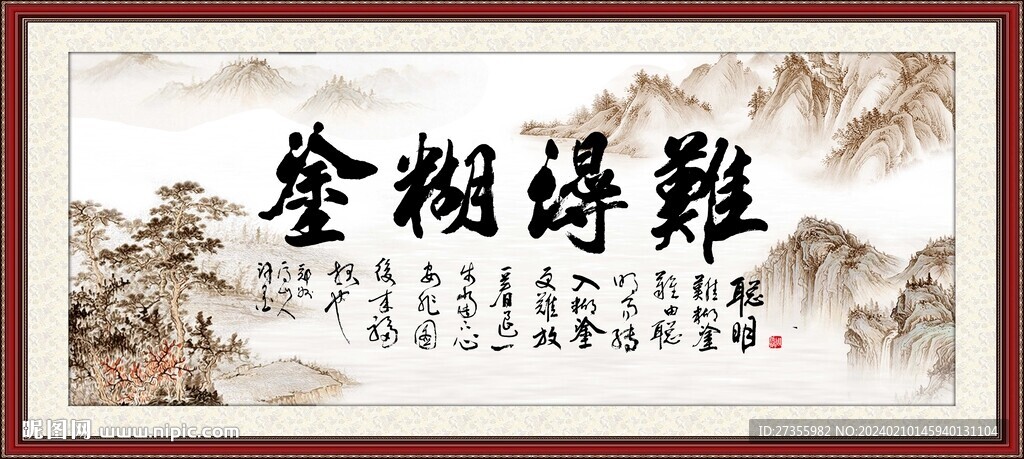 難得糊塗
聰明
難糊塗
難由聰
明而轉
入糊塗
更難放
一着退一
步當下心
安非圖
後來福
報也
昵图网 www.nipic.com
ID:27355982 NO:20240210145940131104